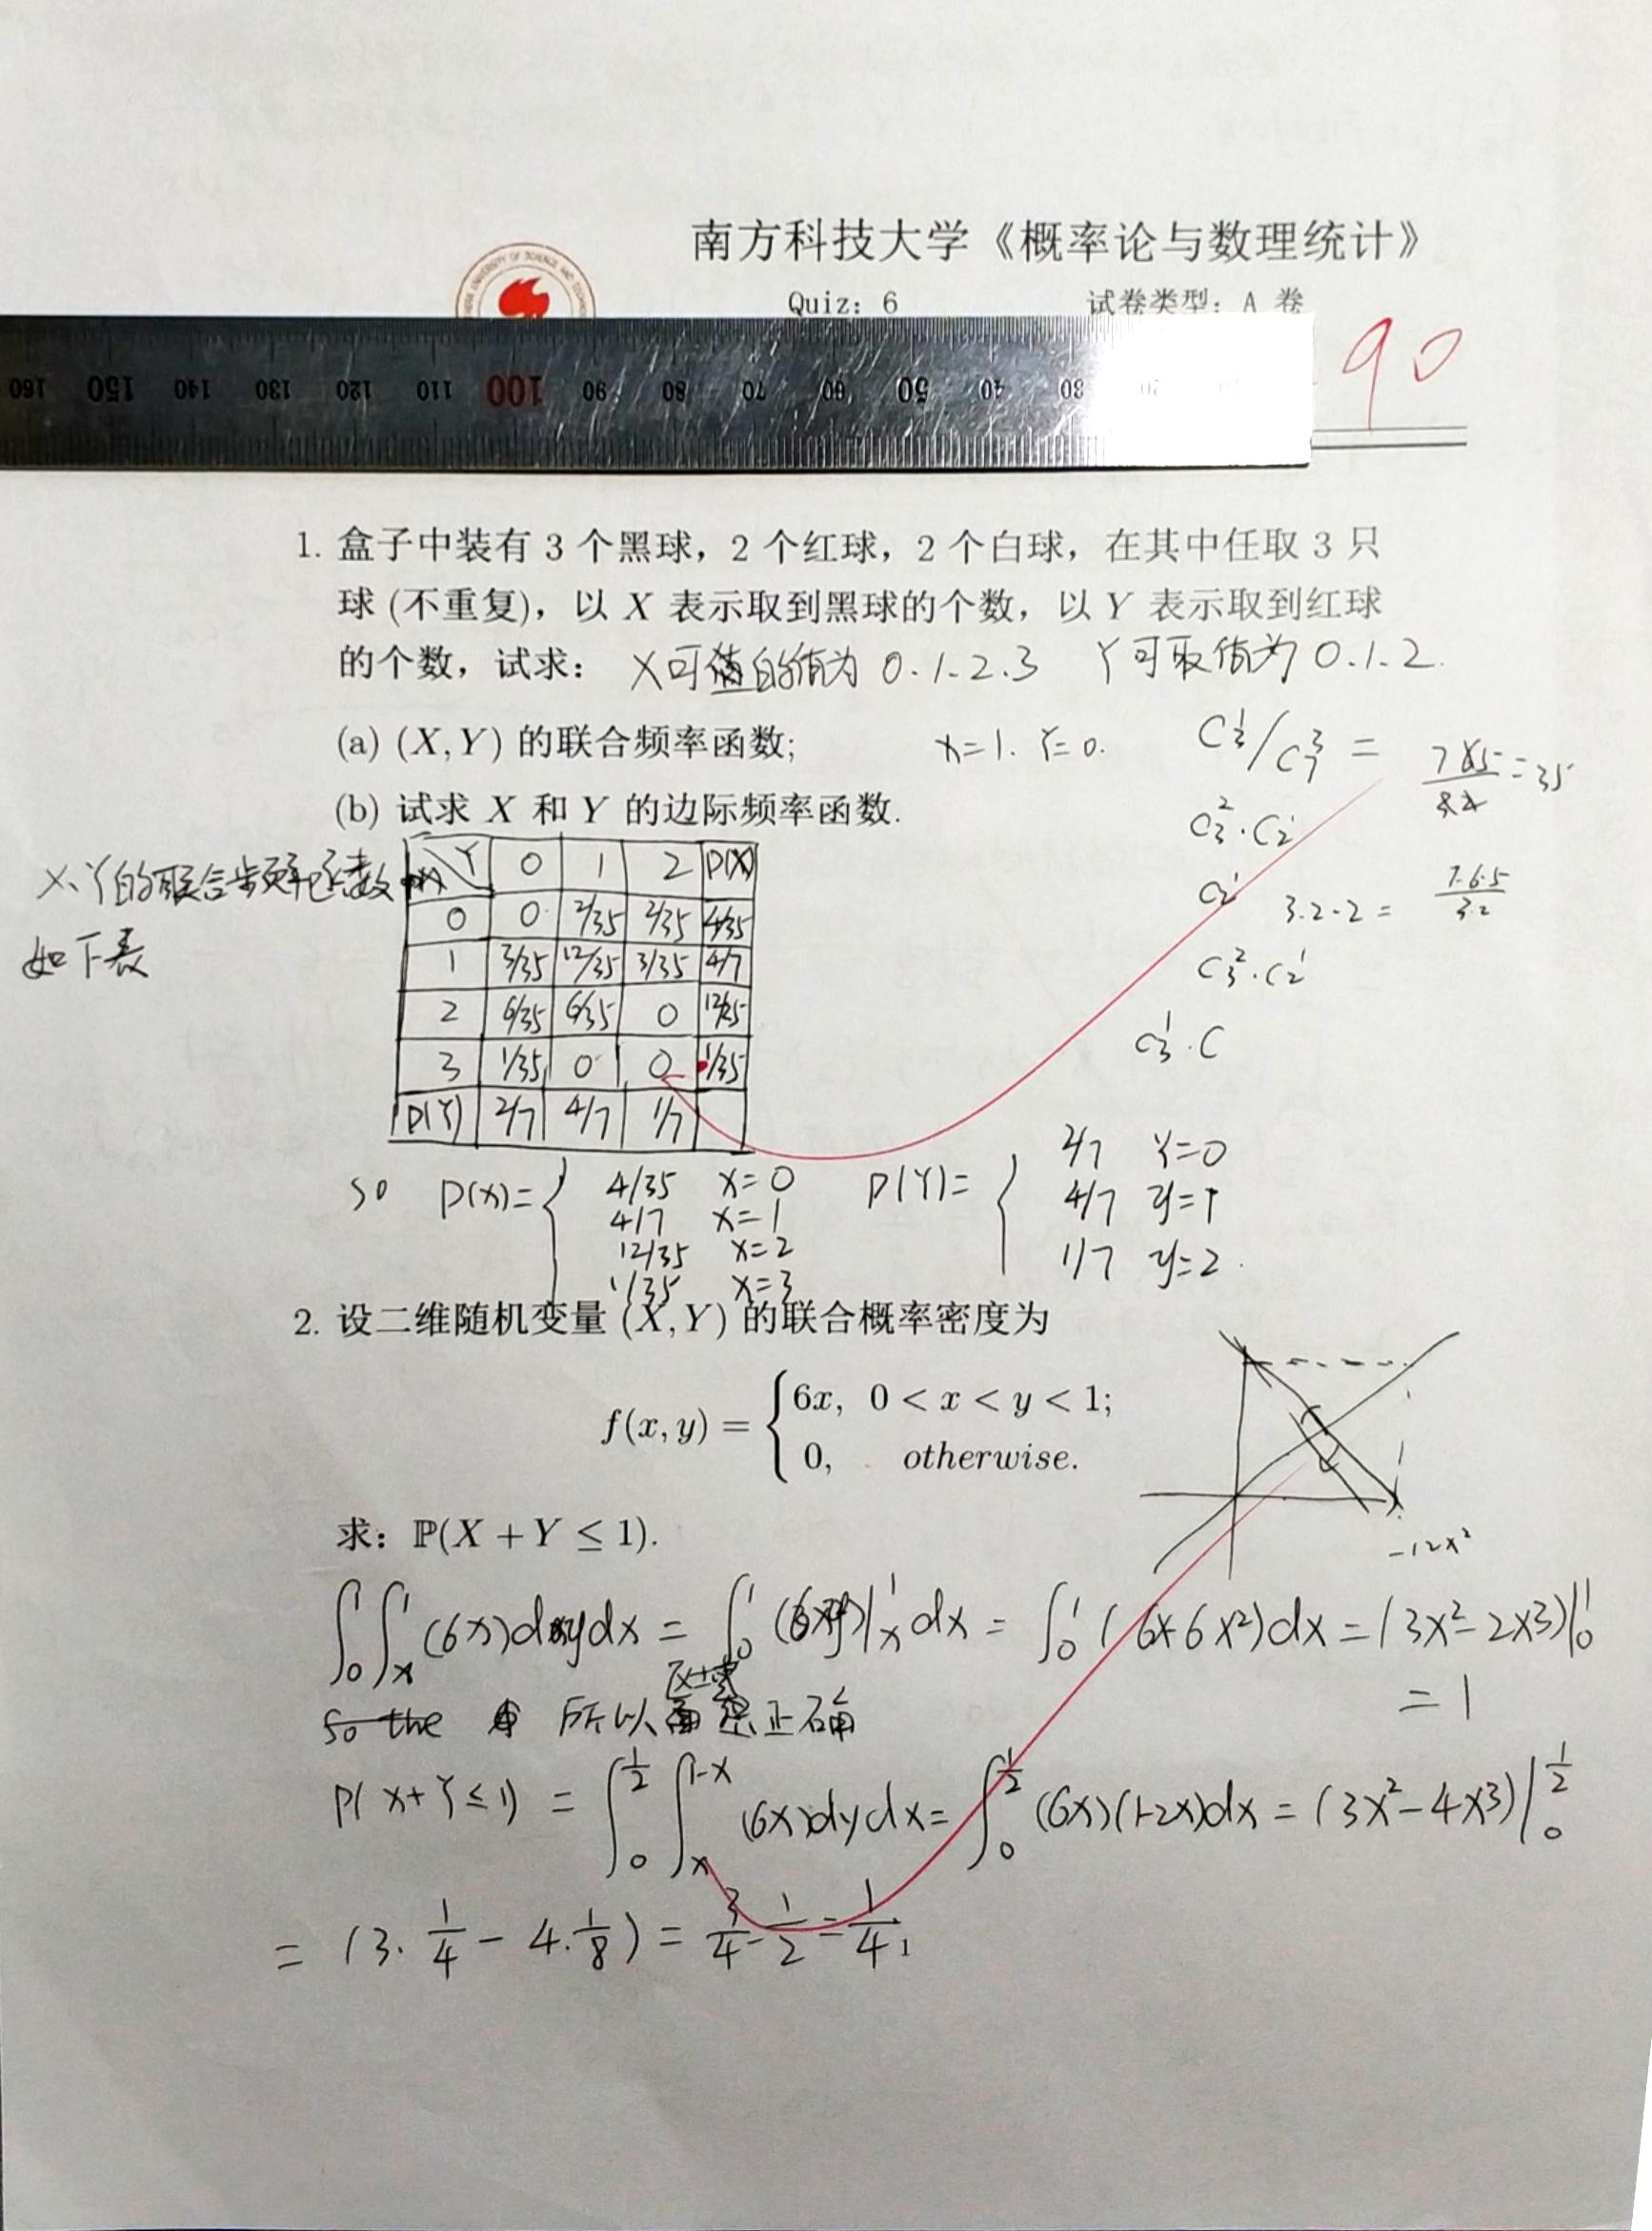 南方科技大学《概率论与数理统计》
Quiz: 6 试卷类型: A 卷
160 150 140 130 120 110 100 90 80 70 60 50 40 30 20
90
1. 盒子中装有 3 个黑球，2 个红球，2 个白球，在其中任取 3 只
球 (不重复)，以 X 表示取到黑球的个数，以 Y 表示取到红球
的个数，试求： X可 的值为 0.1.2.3 Y可取值为 0.1.2.
(a) (X, Y) 的联合频率函数; X=1. Y=0. C₃¹/C₇³ = 7×5 = 35
(b) 试求 X 和 Y 的边际频率函数. C₃²·C₂¹
X、Y的联合频率函数
如下表
Y 0 1 2 P(X)
0 0 2/35 2/35 4/35
1 3/35 12/35 3/35 4/7
2 6/35 6/35 0 12/35
3 1/35 0 0 1/35
P(Y) 2/7 4/7 1/7
C₂¹ 3.2.2 = 7.6.5/3.2
C₃²·C₂¹
C₃¹·C
so P(X)= { 4/35 X=0 P(Y)= { 2/7 Y=0
4/7 X=1 4/7 y=1
12/35 X=2 1/7 y=2.
1/35 X=3
2. 设二维随机变量 (X, Y) 的联合概率密度为
f(x, y) = { 6x, 0 < x < y < 1;
0, otherwise.
求: ℙ(X + Y ≤ 1).
-12x²
∫₀¹∫ₓ¹ (6x)dydx = ∫₀¹ (6xy)|ₓ¹ dx = ∫₀¹ (6x-6x²)dx = (3x²-2x³)|₀¹
= 1
so the 所以 正确
P(X+Y≤1) = ∫₀^½ ∫ₓ^1-x (6x)dydx = ∫₀^½ (6x)(1-2x)dx = (3x²-4x³)|₀^½
= (3·1/4 - 4·1/8) = 3/4 - 1/2 = 1/4